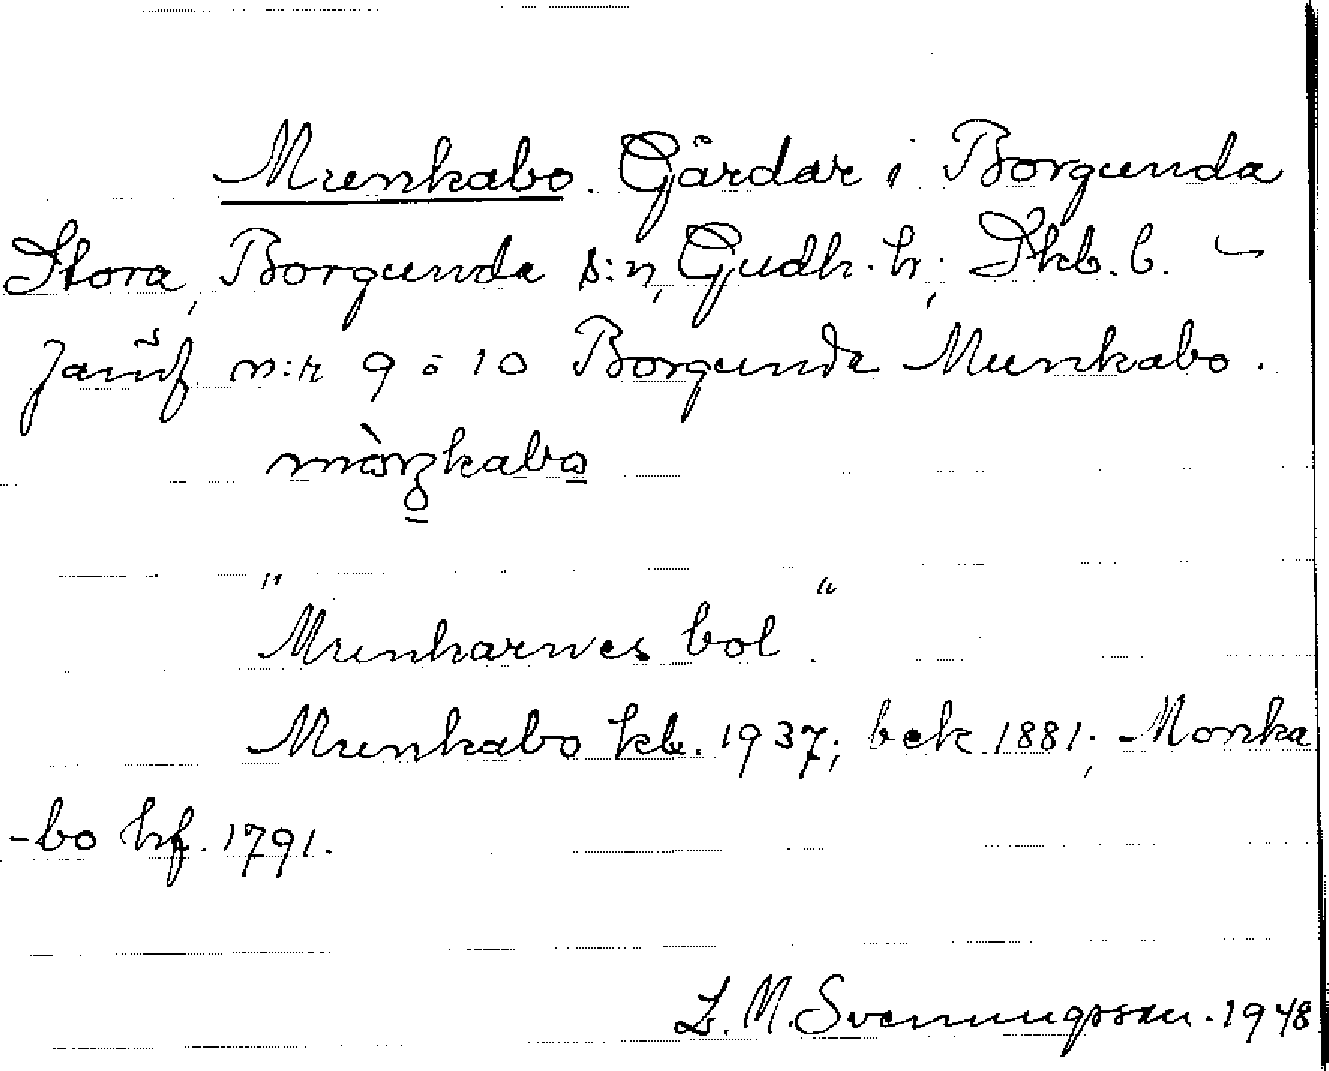 Munkabo. Gårdar i Borgunda
Stora, Borgunda s:n, Gudh. h; Skb. l. –
Jämf. n:r 9 o 10 Borgunda Munkabo.
"Munkarnes bol".
Munkabo kb. 1937; bek 1881; Monka
-bo hf. 1791.
L. M. Svenungsson. 1948